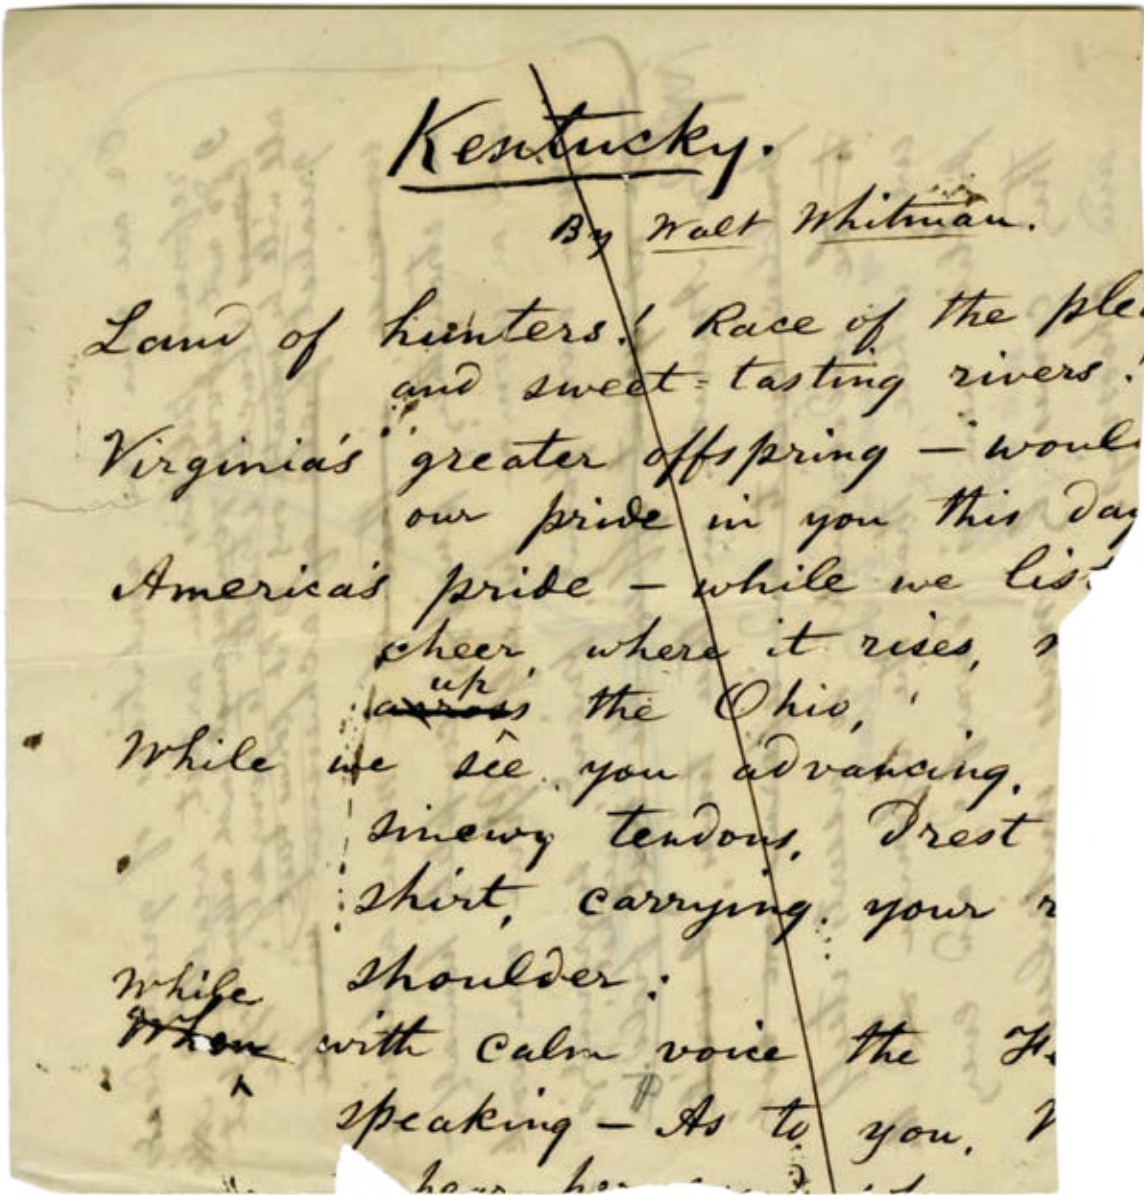 Kentucky.
By Walt Whitman.
Land of hunters! Race of the ple
and sweet-tasting rivers!
Virginia's greater offspring — woul
our pride in you this day
America's pride — while we list
cheer, where it rises,
up
across the Ohio,
While we see you advancing,
sinewy tendons, Drest
shirt, carrying your r
shoulder;
While
When with calm voice the Fe
speaking — As to you,
hear her